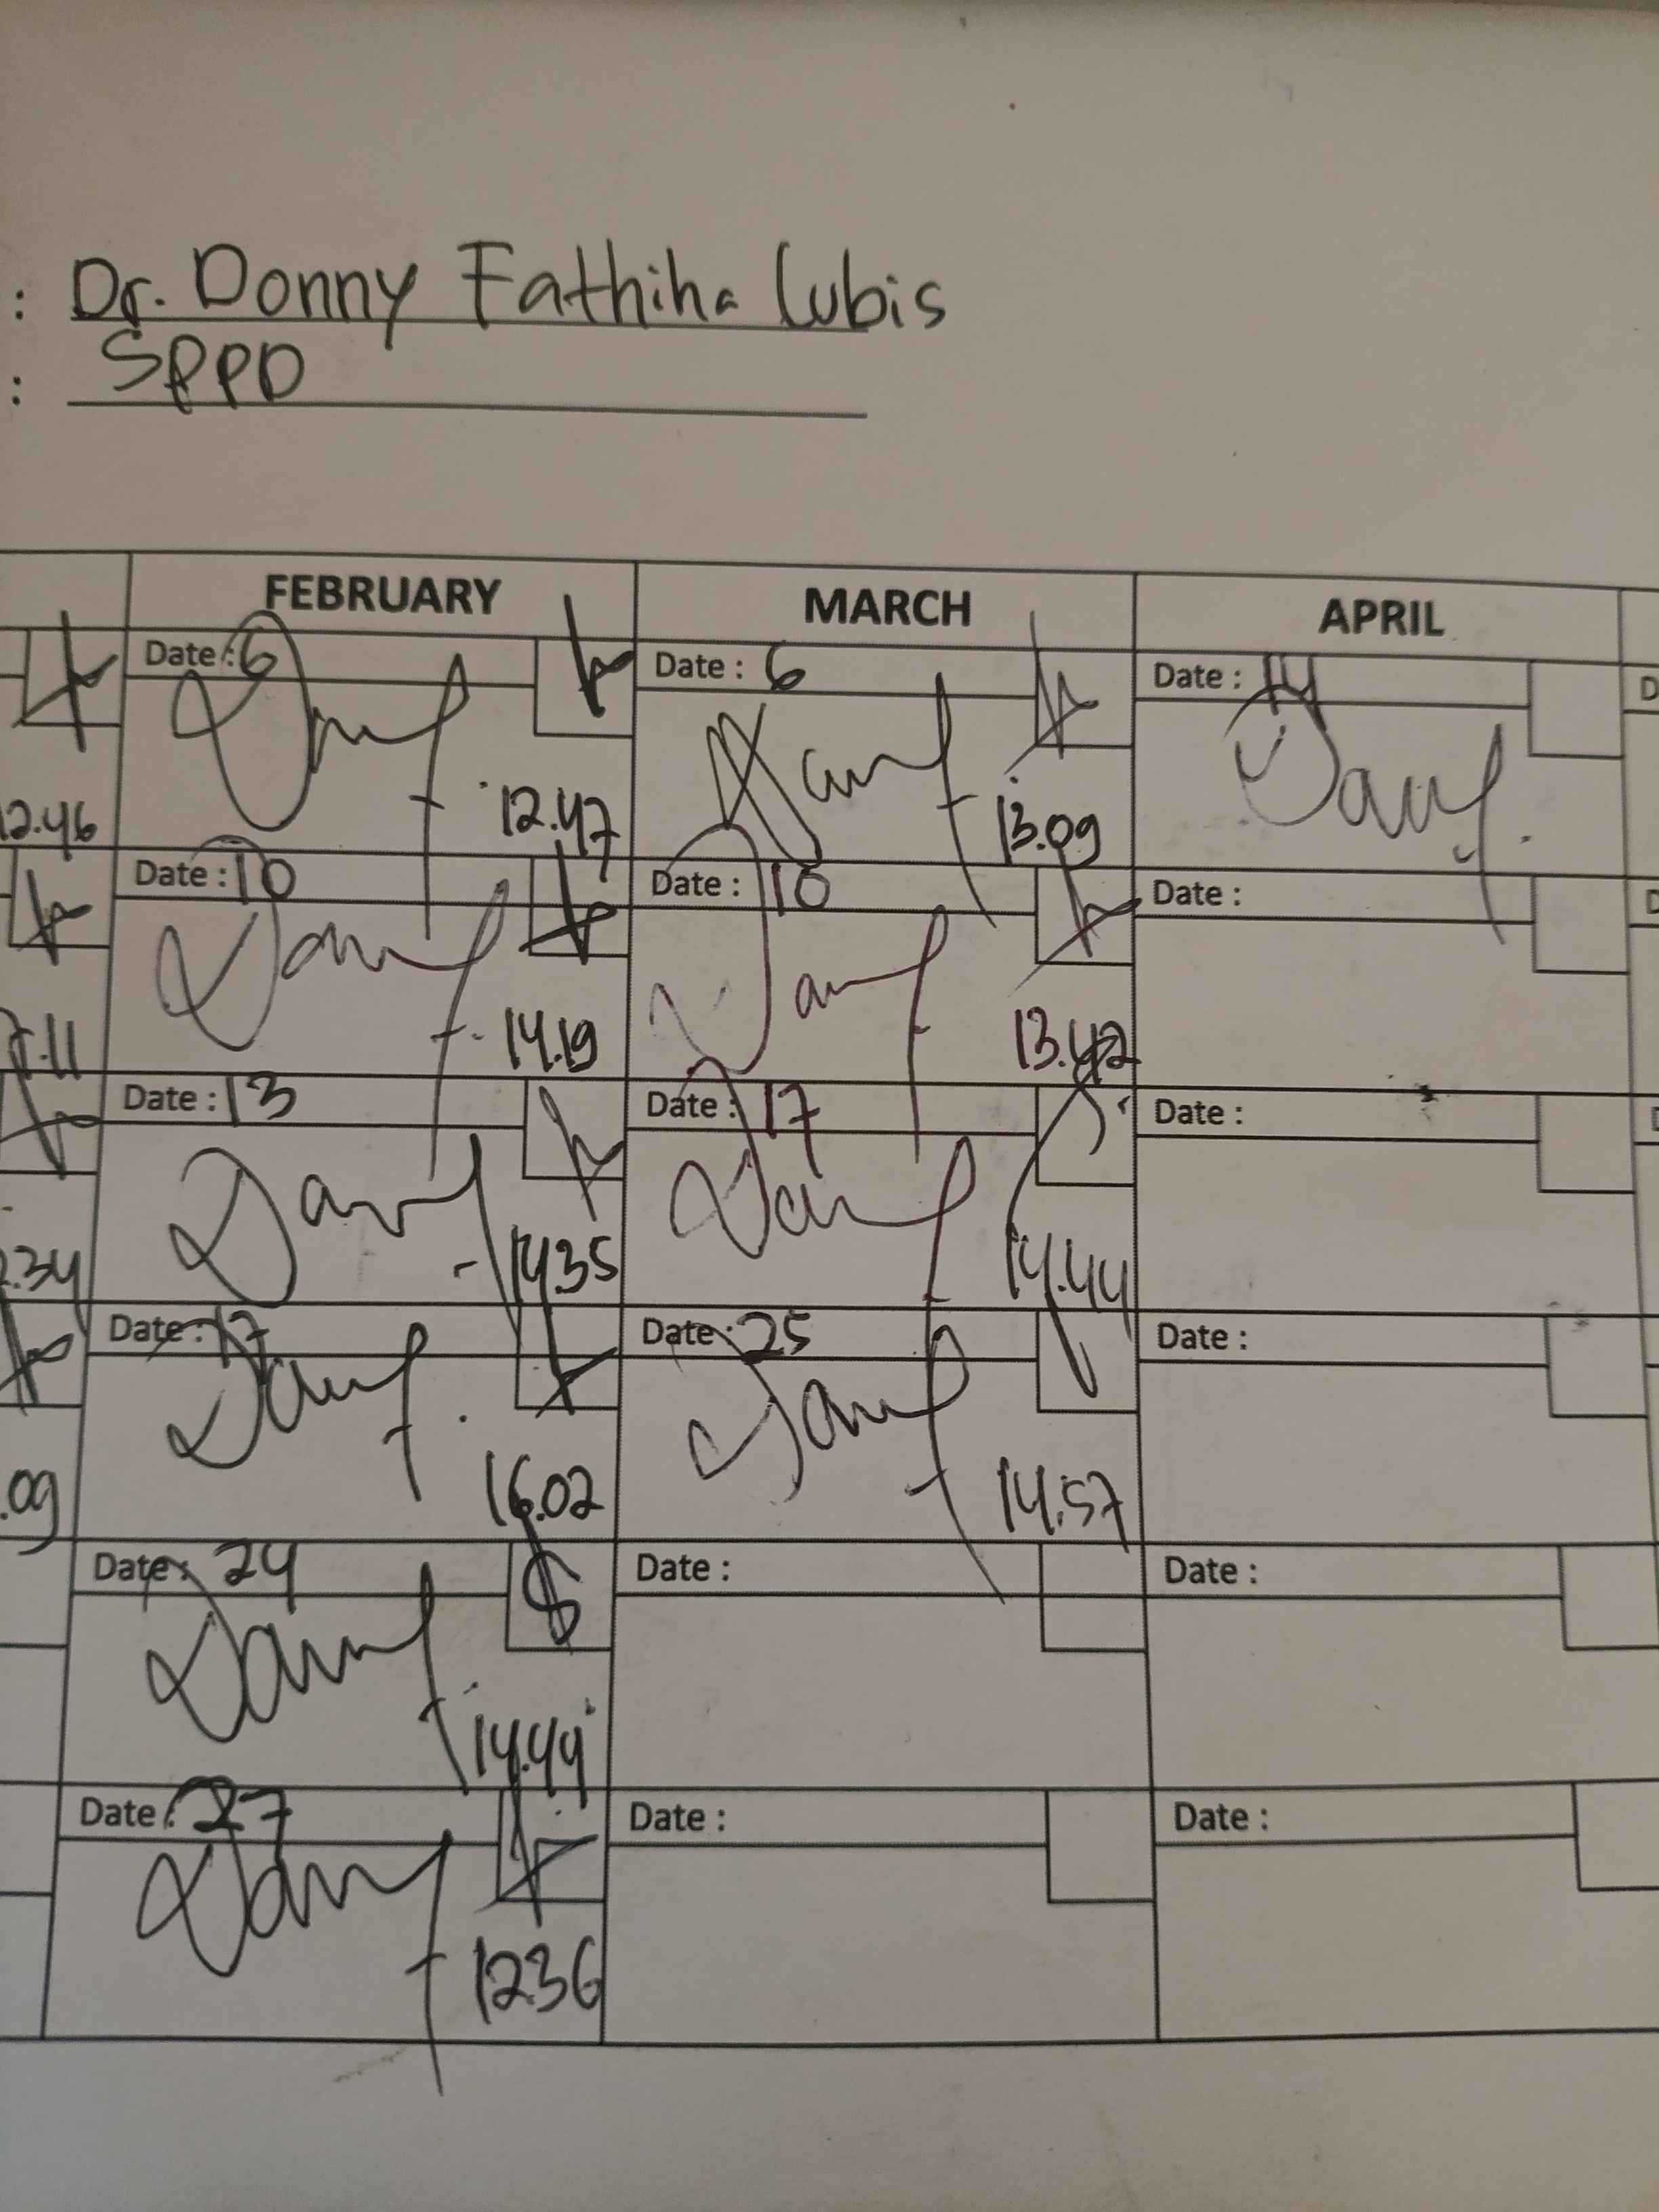 : Dr. Donny Fathiha Lubis
: SPPD
FEBRUARY MARCH APRIL
Date : 6 Date : 6 Date : 14
12.46 12.47 13.09
Date : 10 Date : 10 Date :
.11 14.19 13.42
Date : 13 Date : 17 Date :
.34 14.35 14.44
Date : 17 Date : 25 Date :
.09 16.02 14.57
Date : 24 Date : Date :
14.44
Date : 27 Date : Date :
12.36